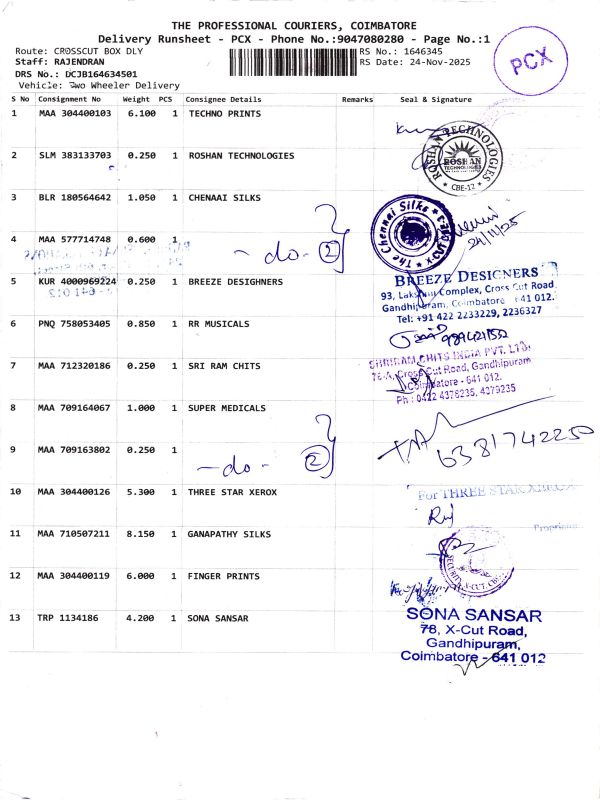 THE PROFESSIONAL COURIERS, COIMBATORE
Delivery Runsheet - PCX - Phone No.:9047080280 - Page No.:1
Route: CROSSCUT BOX DLY
RS No.: 1646345
Staff: RAJENDRAN
RS Date: 24-Nov-2025
DRS No.: DCJB164634501
Vehicle: Two Wheeler Delivery
PCX
S No Consignment No Weight PCS Consignee Details Remarks Seal & Signature
1 MAA 304400103 6.100 1 TECHNO PRINTS
2 SLM 383133703 0.250 1 ROSHAN TECHNOLOGIES
ROSHAN TECHNOLOGIES
ROSHAN
TECHNOLOGIES
CBE-12
3 BLR 180564642 1.050 1 CHENAAI SILKS
The Chennai Silks
24/11/25
4 MAA 577714748 0.600 1
- do - 2
5 KUR 4000969224 0.250 1 BREEZE DESIGHNERS
BREEZE DESIGNERS
93, Lakshmi Complex, Cross Cut Road
Gandhipuram, Coimbatore - 641 012.
Tel: +91 422 2233229, 2236327
6 PNQ 758053405 0.850 1 RR MUSICALS
7 MAA 712320186 0.250 1 SRI RAM CHITS
SHRIRAM CHITS INDIA PVT. LTD.
Cross Cut Road, Gandhipuram
Coimbatore - 641 012.
Ph : 0422 4376235, 4379235
8 MAA 709164067 1.000 1 SUPER MEDICALS
9 MAA 709163802 0.250 1
- do - 2
6381742250
10 MAA 304400126 5.300 1 THREE STAR XEROX
For THREE STAR XEROX
11 MAA 710507211 8.150 1 GANAPATHY SILKS
12 MAA 304400119 6.000 1 FINGER PRINTS
13 TRP 1134186 4.200 1 SONA SANSAR
SONA SANSAR
78, X-Cut Road,
Gandhipuram,
Coimbatore - 641 012